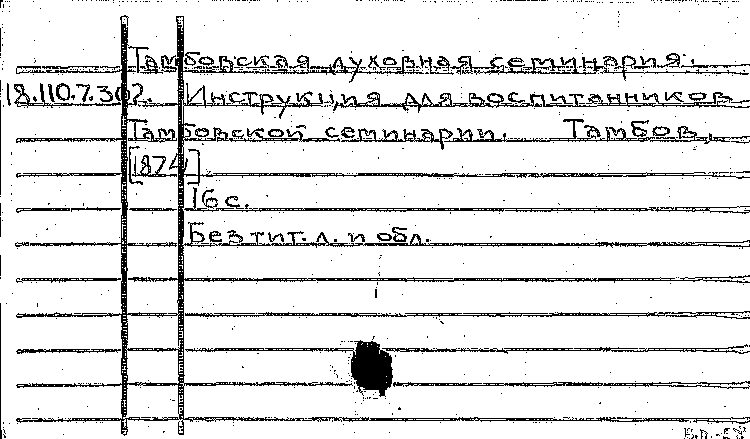 Тамбовская духовная семинария.
18.110.7.302. Инструкция для воспитанников
Тамбовской семинарии. Тамбов,
[1874]
16 с.
Без тит. л. и обл.